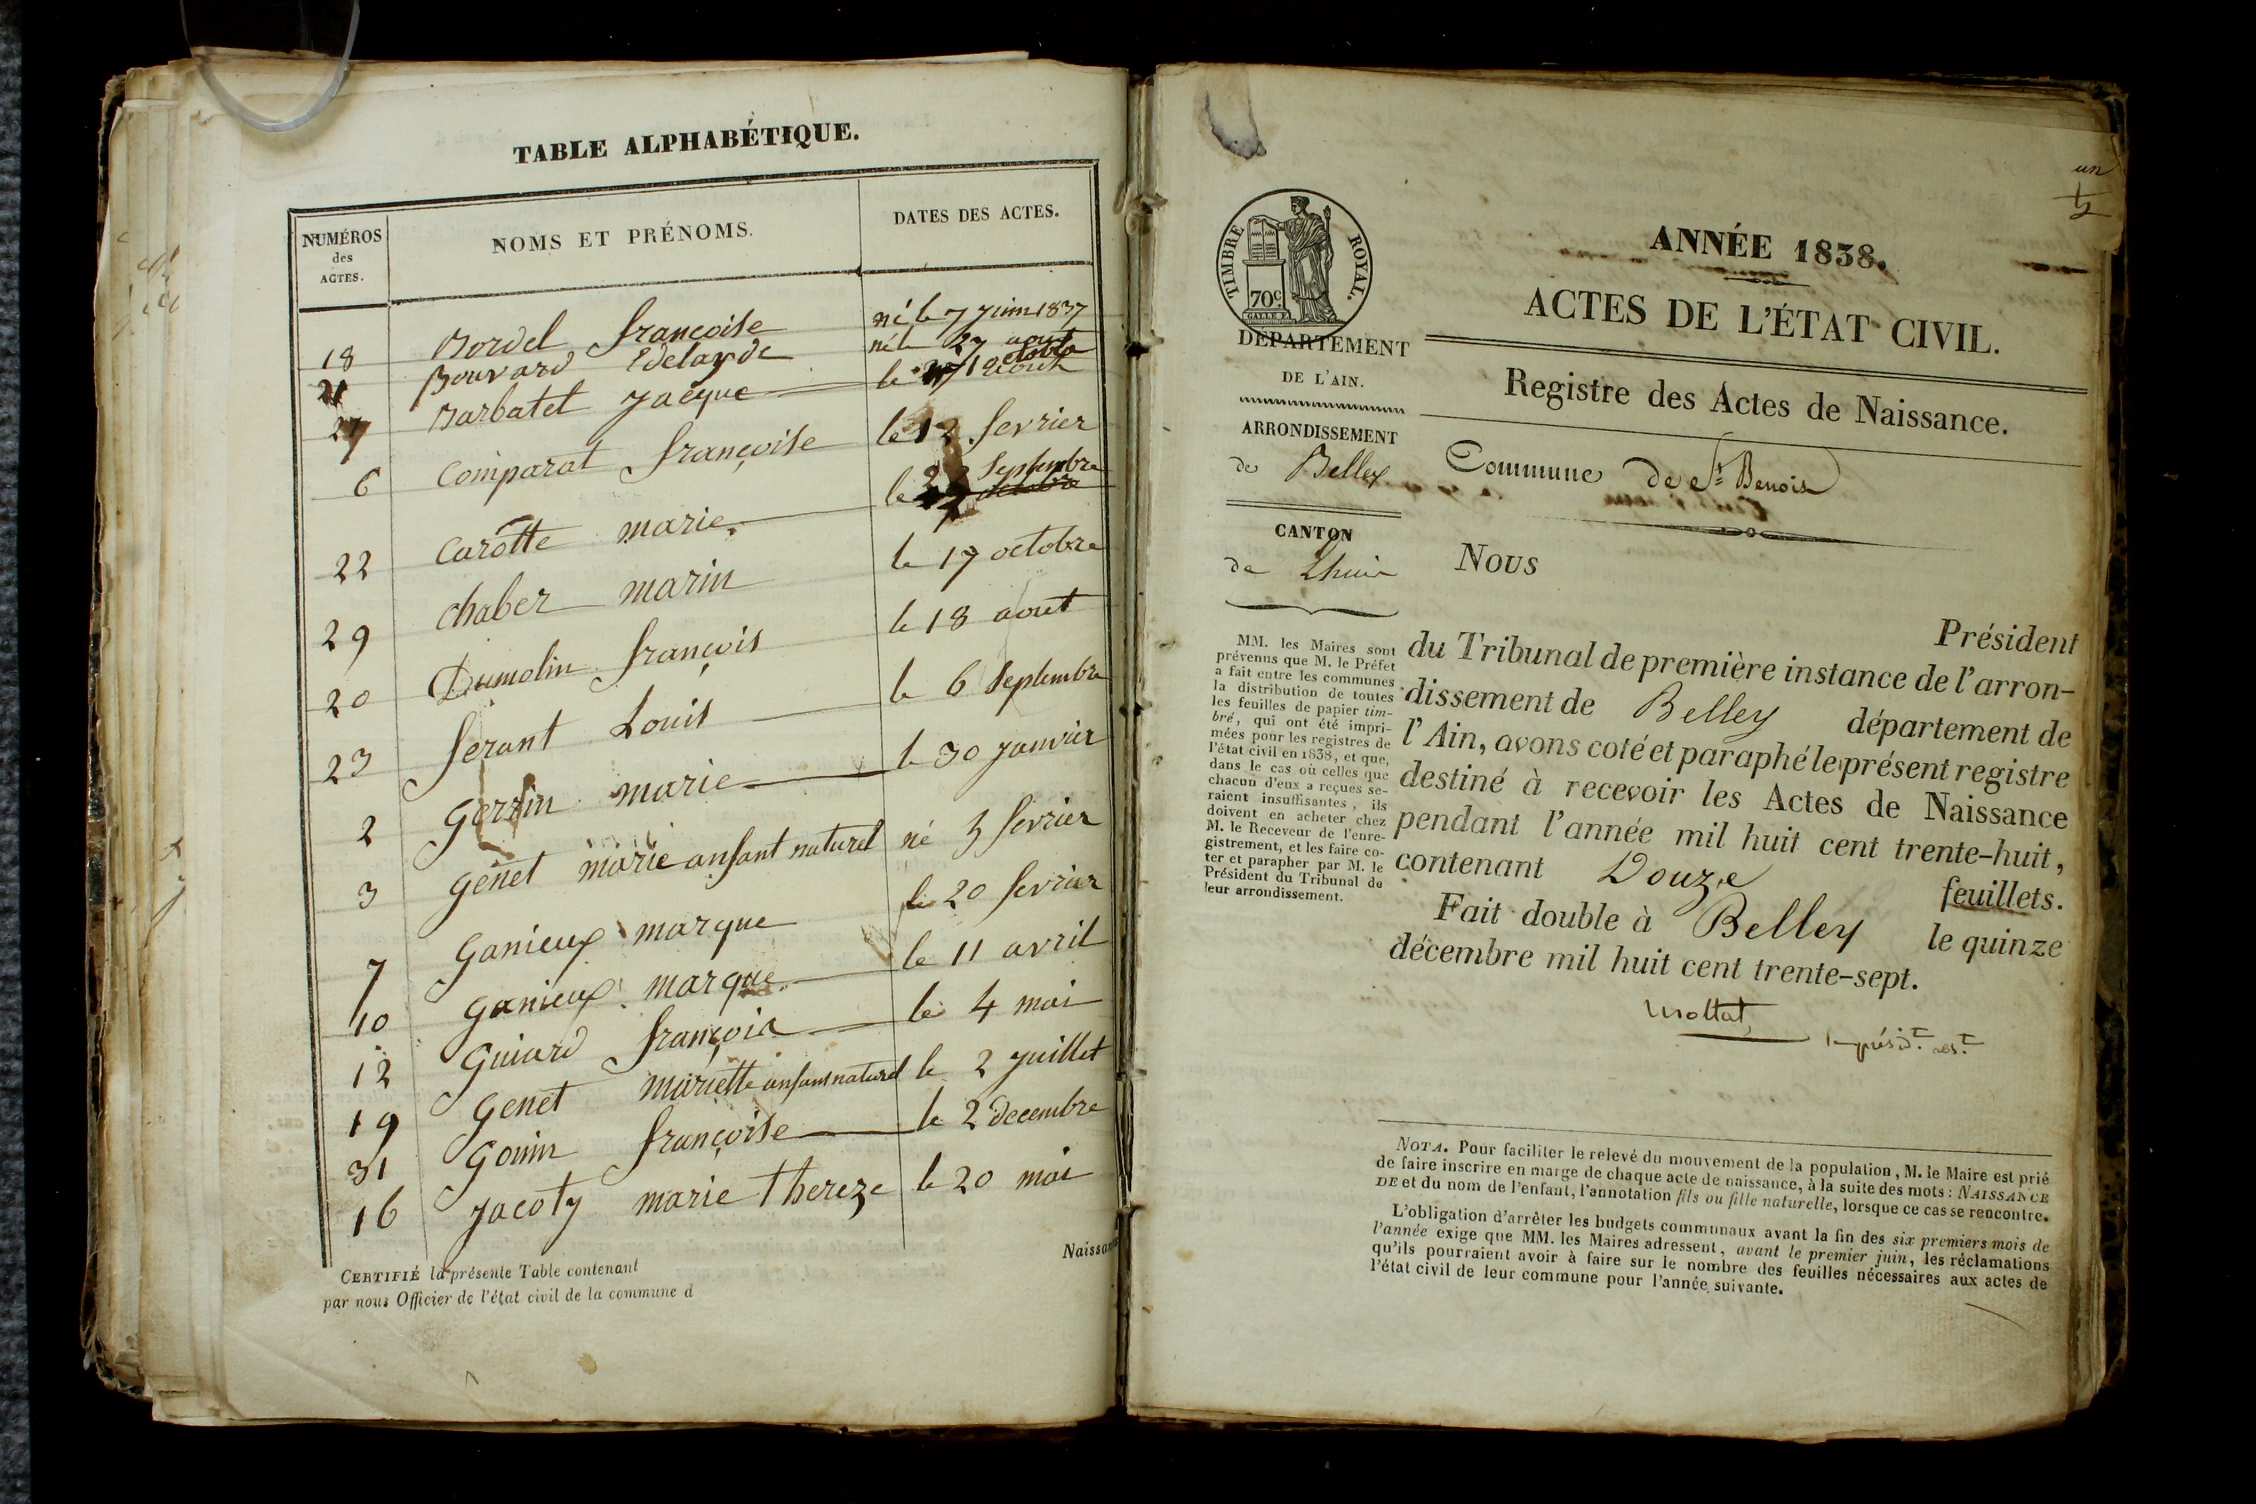 TABLE ALPHABÉTIQUE.
NUMÉROS des ACTES. NOMS ET PRÉNOMS. DATES DES ACTES.
18 Bordel françoise né le 7 juin 1837
21 Bouvard Edelayde né le 27 aout
27 Barbatel Jacque le 1 octobre
6 Comparat françoise le 12 fevrier
22 Carotte marie le septembre
29 Chaber marin le 17 octobre
20 Dumolin françois le 18 aout
23 ferant Louis le 6 septembre
2 marie le 30 janvier
3 genet marie anfant naturel né 3 fevrier
7 ganieux marque le 20 fevrier
10 ganieux marque le 11 avril
12 guiard françois le 4 mai
19 genet mariette anfant naturel le 2 juillet
31 gonin françoise le 2 decembre
16 jacoty marie thereze le 20 mai
Naissan
CERTIFIÉ la présente Table contenant
par nous Officier de l'état civil de la commune d
un
TIMBRE ROYAL.
70c
DÉPARTEMENT
DE L'AIN.
ARRONDISSEMENT
de Belley
CANTON
de Lhuis
MM. les Maires sont
prévenus que M. le Préfet
a fait entre les communes
la distribution de toutes
les feuilles de papier tim-
bré, qui ont été impri-
mées pour les registres de
l'état civil en 1838, et que,
dans le cas où celles que
chacun d'eux a reçues se-
raient insuffisantes, ils
doivent en acheter chez
M. le Receveur de l'enre-
gistrement, et les faire co-
ter et parapher par M. le
Président du Tribunal de
leur arrondissement.
ANNÉE 1838.
ACTES DE L'ÉTAT CIVIL.
Registre des Actes de Naissance.
Commune de St Benoit
NOUS
Président
du Tribunal de première instance de l'arron-
dissement de Belley département de
l'Ain, avons coté et paraphé le présent registre
destiné à recevoir les Actes de Naissance
pendant l'année mil huit cent trente-huit,
contenant Douze feuillets.
Fait double à Belley le quinze
décembre mil huit cent trente-sept.
Mottat
NOTA. Pour faciliter le relevé du mouvement de la population, M. le Maire est prié
de faire inscrire en marge de chaque acte de naissance, à la suite des mots : NAISSANCE
DE et du nom de l'enfant, l'annotation fils ou fille naturelle, lorsque ce cas se rencontre.
L'obligation d'arrêter les budgets communaux avant la fin des six premiers mois de
l'année exige que MM. les Maires adressent, avant le premier juin, les réclamations
qu'ils pourraient avoir à faire sur le nombre des feuilles nécessaires aux actes de
l'état civil de leur commune pour l'année suivante.